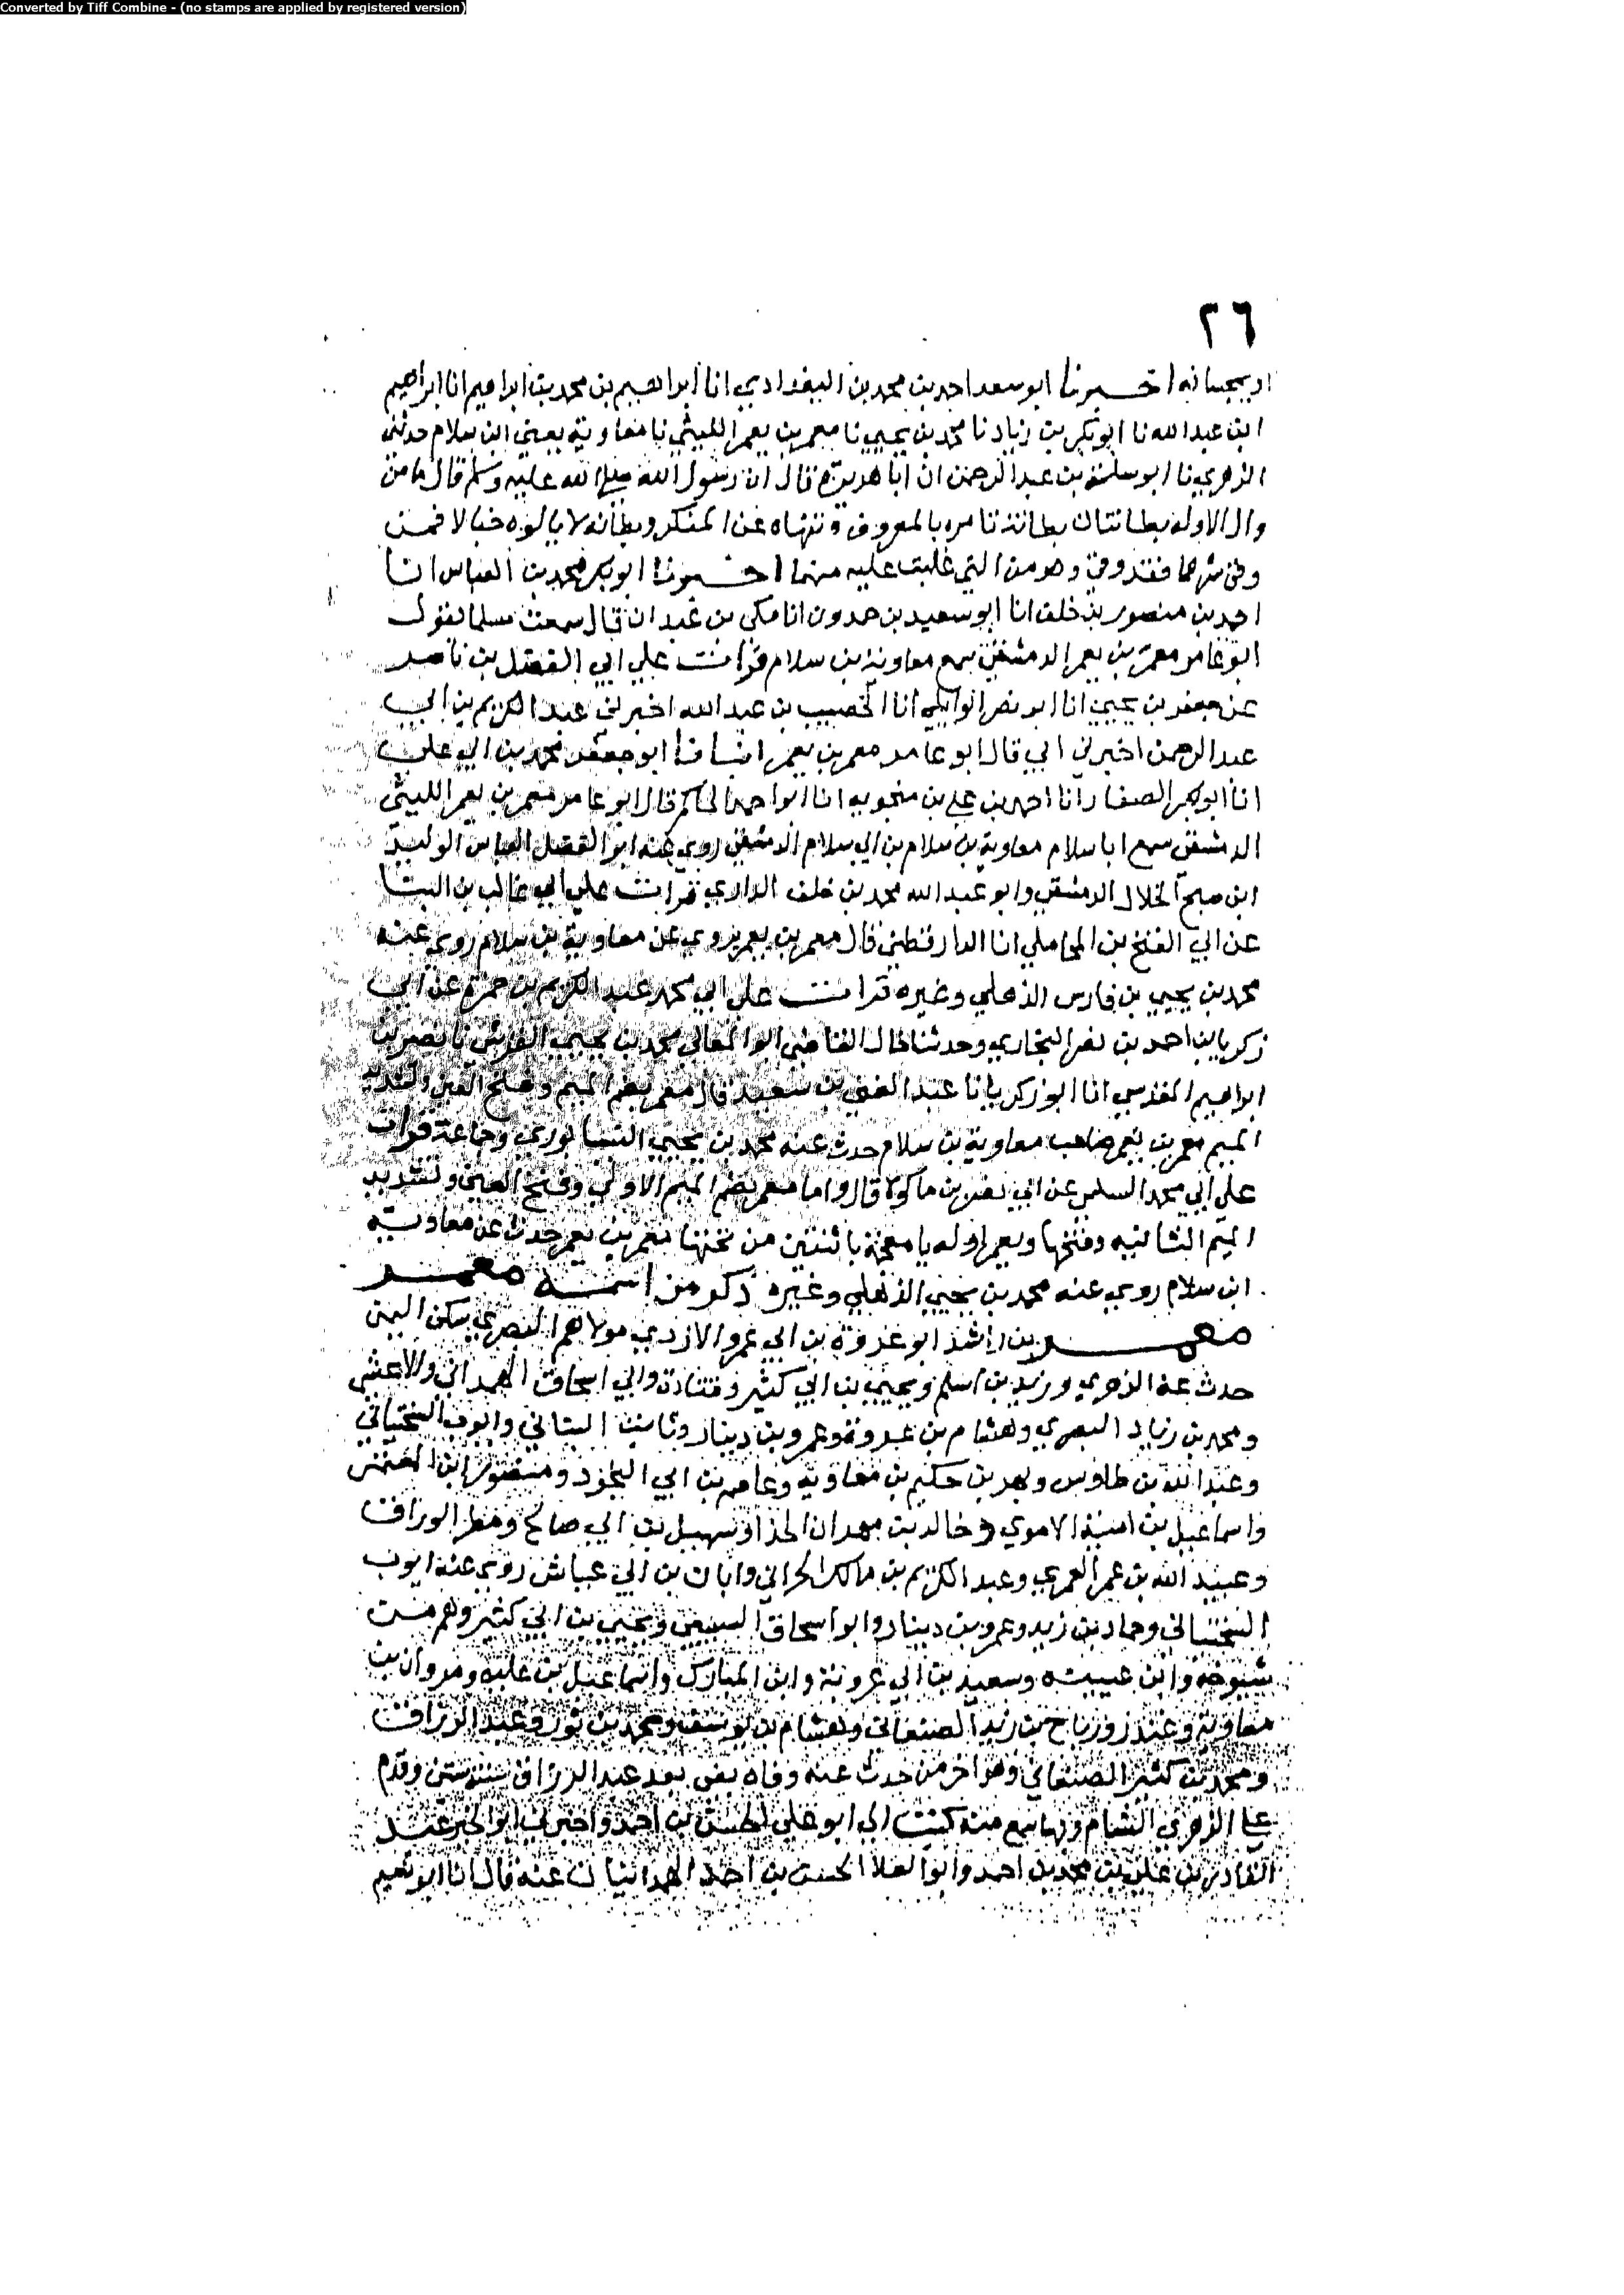 Converted by Tiff Combine - (no stamps are applied by registered version)
٢٦
اخبرنا ابو سعد احمد بن محمد بن البغدادي انا ابراهيم بن محمد بن ابراهيم انا ابراهيم
ابن عبد الله نا ابو بكر بن زياد نا محمد بن يحيى نا معمر بن يعمر الليثي نا معاوية يعني ابن سلام حدثني
الزهري نا ابو سلمة بن عبد الرحمن ان ابا هريرة قال ان رسول الله صلى الله عليه وسلم قال ما من
وال الا وله بطانتان بطانة تامره بالمعروف وتنهاه عن المنكر وبطانه لا يالوه خبالا فمن
وقي شرهما فقد وقي وهو من التي غلبت عليه منهما اخبرنا ابو بكر محمد بن العباس انا
احمد بن منصور بن خلف انا ابو سعيد بن حمدون انا مكي بن عبدان قال سمعت مسلما يقول
ابو عامر معمر بن يعمر الدمشقي سمع معاوية بن سلام قرات علي ابي الفضل بن ناصر
عن جعفر بن يحيى انا ابو نصر الوايلي انا الخصيب بن عبد الله اخبرني عبد الكريم بن ابي
عبد الرحمن اخبرني ابي قال ابو عامر معمر بن يعمر انبانا ابو جعفر محمد بن ابي علي
انا ابو بكر الصفار انا احمد بن علي بن منجويه انا ابو احمد الحاكم قال ابو عامر معمر بن يعمر الليثي
الدمشقي سمع ابا سلام معاوية بن سلام بن ابي سلام الدمشقي روى عنه ابو الفضل العباس الوليد
ابن صبح الخلال الدمشقي وابو عبد الله محمد بن خلف الداري قرات علي ابي غالب بن البنا
عن ابي الفتح بن المحاملي انا الدارقطني قال معمر بن يعمر يروي عن معاوية بن سلام روى عنه
محمد بن يحيى بن فارس الذهلي وغيره قرات علي ابي محمد عبد الكريم بن حمزة عن ابي
زكريا بن احمد بن نصر البخاري وحدثنا خال القاضي ابو المعالي محمد بن يحيى القرشي نا نصر بن
ابراهيم المقدسي انا ابو زكريا انا عبد الغني بن سعيد قال معمر بضم الميم وفتح العين وتشديد
الميم معمر بن يعمر صاحب معاوية بن سلام حدث عنه محمد بن يحيى النيسابوري وجماعة قرات
علي ابي محمد السلمي عن ابي نصر بن ماكولا قال واما معمر بضم الميم الاولى وفتح العين وتشديد
الميم الثانيه وفتحها ويعمر اوله يا معجمة باثنتين من تحتها معمر بن يعمر حدث عن معاوية
ابن سلام روى عنه محمد بن يحيى الذهلي وغيره ذكر من اسمه معمر
معمر بن راشد ابو عروة بن ابي عمرو الازدي مولاهم البصري سكن اليمن
حدث عن الزهري وزيد بن اسلم ويحيى بن ابي كثير وقتادة وابي اسحاق الهمداني والاعمش
ومحمد بن زياد البصري وهشام بن عروة وعمرو بن دينار وثابت البناني وايوب السختياني
وعبد الله بن طاوس وبهز بن حكيم بن معاوية وعاصم بن ابي النجود ومنصور ابن المعتمر
واسماعيل بن امية الاموي وخالد بن مهران الحذا وسهيل بن ابي صالح ومطر الوراق
وعبيد الله بن عمر العمري وعبد الكريم بن مالك الحراني وابان بن ابي عياش روى عنه ايوب
السختياني وحماد بن زيد وعمرو بن دينار وابو اسحاق السبيعي ويحيى بن ابي كثير وهم من
شيوخه وابن عيينه وسعيد بن ابي عروبة وابن المبارك واسماعيل بن علية ومروان بن
معاوية وغندر ورباح بن زيد الصنعاني وهشام بن يوسف ومحمد بن ثور وعبد الرزاق
ومحمد بن كثير الصنعاني وهو اخر من حدث عنه وفاة بقي بعد عبد الرزاق سنة وقدم
على الزهري الشام وبها سمع منه كتب الي ابو علي الحسن بن احمد واخبرني ابو الخير عبد
القادر بن علي بن محمد بن احمد وابو العلا الحسن بن احمد الهمدانيان عنه قال انا ابو نعيم